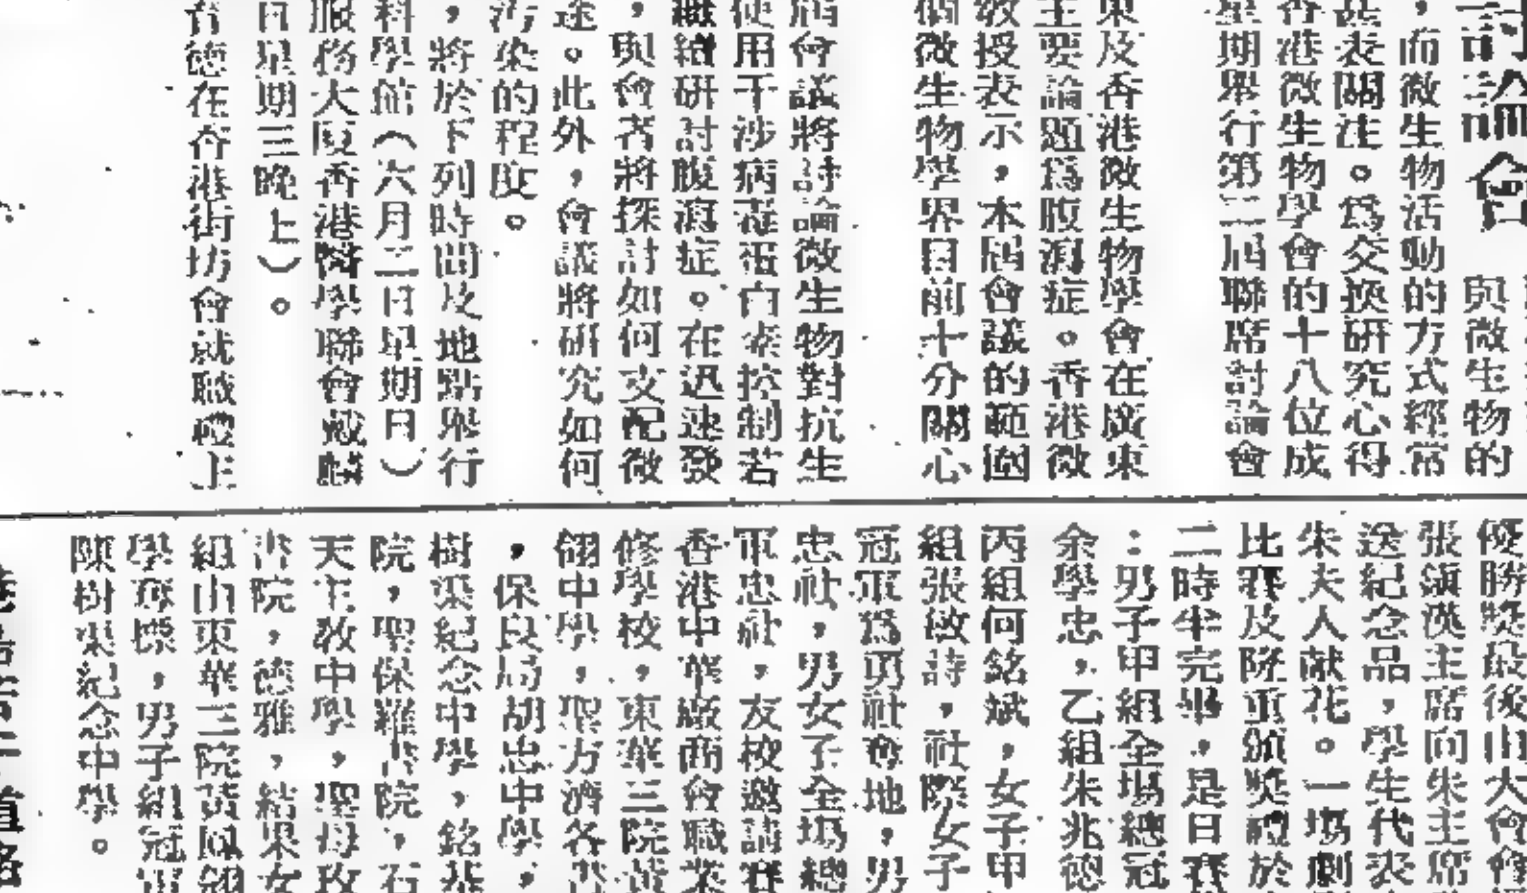 討論會
與微生物的
，而微生物活動的方式經常
甚表關注。為交換研究心得
香港微生物學會的十八位成
星期舉行第二屆聯席討論會
東及香港微生物學會在廣東
主要論題為腹瀉症。香港微
教授表示，本屆會議的範圍
個微生物學界目前十分關心
屆會議將討論微生物對抗生
使用干涉病毒蛋白素控制若
繼續研討腹瀉症。在迅速發
，與會者將探討如何支配微
途。此外，會議將研究如何
污染的程度。
，將於下列時間及地點舉行
科學館（六月二日星期日）
服務大廈香港醫學聯會戴麟
日星期三晚上）。
育德在香港街坊會就職禮上
優勝獎最後由大會會
張漢主席向朱主席
送紀念品，學生代表
朱夫人献花。一場劇
比賽及隆重頒獎禮於
二時半完畢，是日賽
：男子甲組全場總冠
余學忠，乙組朱兆德
丙組何銘斌，女子甲
組張敏詩，社際女子
冠軍為勇社奪地，男
忠社，男女子全場總
軍忠社，友校邀請賽
香港中華廠商會職業
修學校，東華三院黃
翎中學，聖方濟各書
，保良局胡忠中學，
樹梁紀念中學，銘基
院，聖保羅書院，石
天主教中學，聖母玫
書院，德雅，結果女
組由東華三院黃鳳翎
學奪標，男子組冠軍
陳樹渠紀念中學。